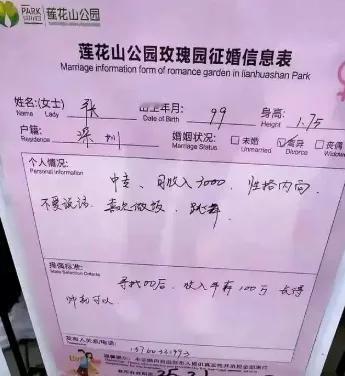 PARK 莲花山公园
莲花山公园玫瑰园征婚信息表
Marriage information form of romance garden in lianhuashan Park
姓名:(女士) 张 出生年月: 99 身高: 1.75
Name Lady Date of Birth Height
户籍: 深圳 婚姻状况: □ 未婚 ☑ 离异 □ 丧偶
Residence Marriage Status Unmarried Divorce Widow
个人情况:
Personal information
中专、月收入3000, 性格内向,
不爱说话, 喜欢做饭, 跳舞。
择偶标准:
寻找00后, 收入年薪100万 长得
帅即可以
发布人关系/电话: